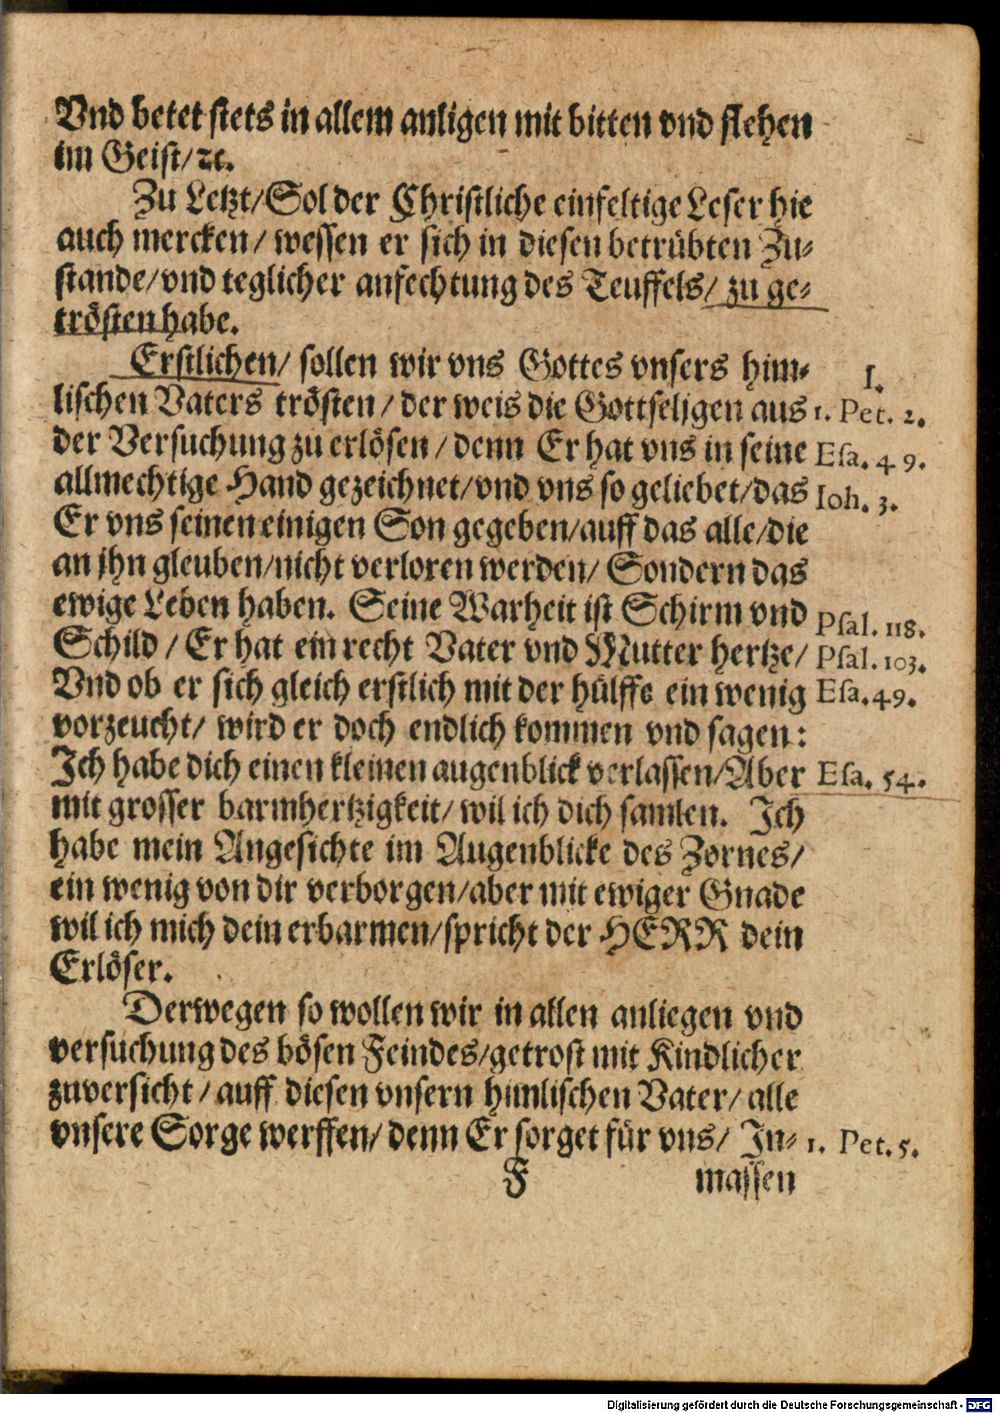 Vnd betet stets in allem anligen mit bitten vnd flehen
im Geist/ ꝛc.
Zu Letzt/ Sol der Christliche einfeltige Leser hie
auch mercken/ wessen er sich in diesen betrübten Zu-
stande/ vnd teglicher anfechtung des Teuffels/ zu ge-
trösten habe.
Erstlichen/ sollen wir vns Gottes vnsers him-
I.
lischen Vaters trösten/ der weis die Gottseljgen aus
1. Pet. 2.
der Versuchung zu erlösen/ denn Er hat vns in seine
Esa. 49.
allmechtige Hand gezeichnet/ vnd vns so geliebet/ das
Ioh. 3.
Er vns seinen einigen Son gegeben/ auff das alle/ die
an jhn gleuben/ nicht verloren werden/ Sondern das
ewige Leben haben. Seine Warheit ist Schirm vnd
Psal. 118.
Schild/ Er hat ein recht Vater vnd Mutter hertze/
Psal. 103.
Vnd ob er sich gleich erstlich mit der hülffe ein wenig
Esa. 49.
vorzeucht/ wird er doch endlich kommen vnd sagen:
Ich habe dich einen kleinen augenblick verlassen/ Aber
Esa. 54.
mit grosser barmhertzigkeit/ wil ich dich samlen. Ich
habe mein Angesichte im Augenblicke des Zornes/
ein wenig von dir verborgen/ aber mit ewiger Gnade
wil ich mich dein erbarmen/ spricht der HERR dein
Erlöser.
Derwegen so wollen wir in allen anliegen vnd
versuchung des bösen Feindes/ getrost mit Kindlicher
zuversicht/ auff diesen vnsern himlischen Vater/ alle
vnsere Sorge werffen/ denn Er sorget für vns/ In-
1. Pet. 5.
F
massen
Digitalisierung gefördert durch die Deutsche Forschungsgemeinschaft - DFG